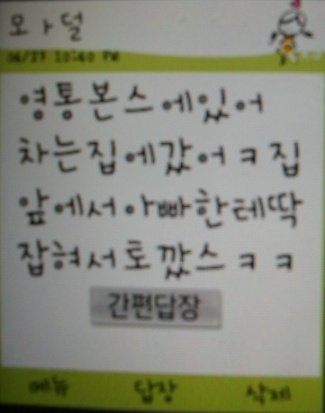 모ㅏ덜
04/27 10:40 PM
영통본스에있어
차는집에갔어ㅋ집
앞에서아빠한테딱
잡혀서토깠스ㅋㅋ
간편답장
메뉴 답장 삭제